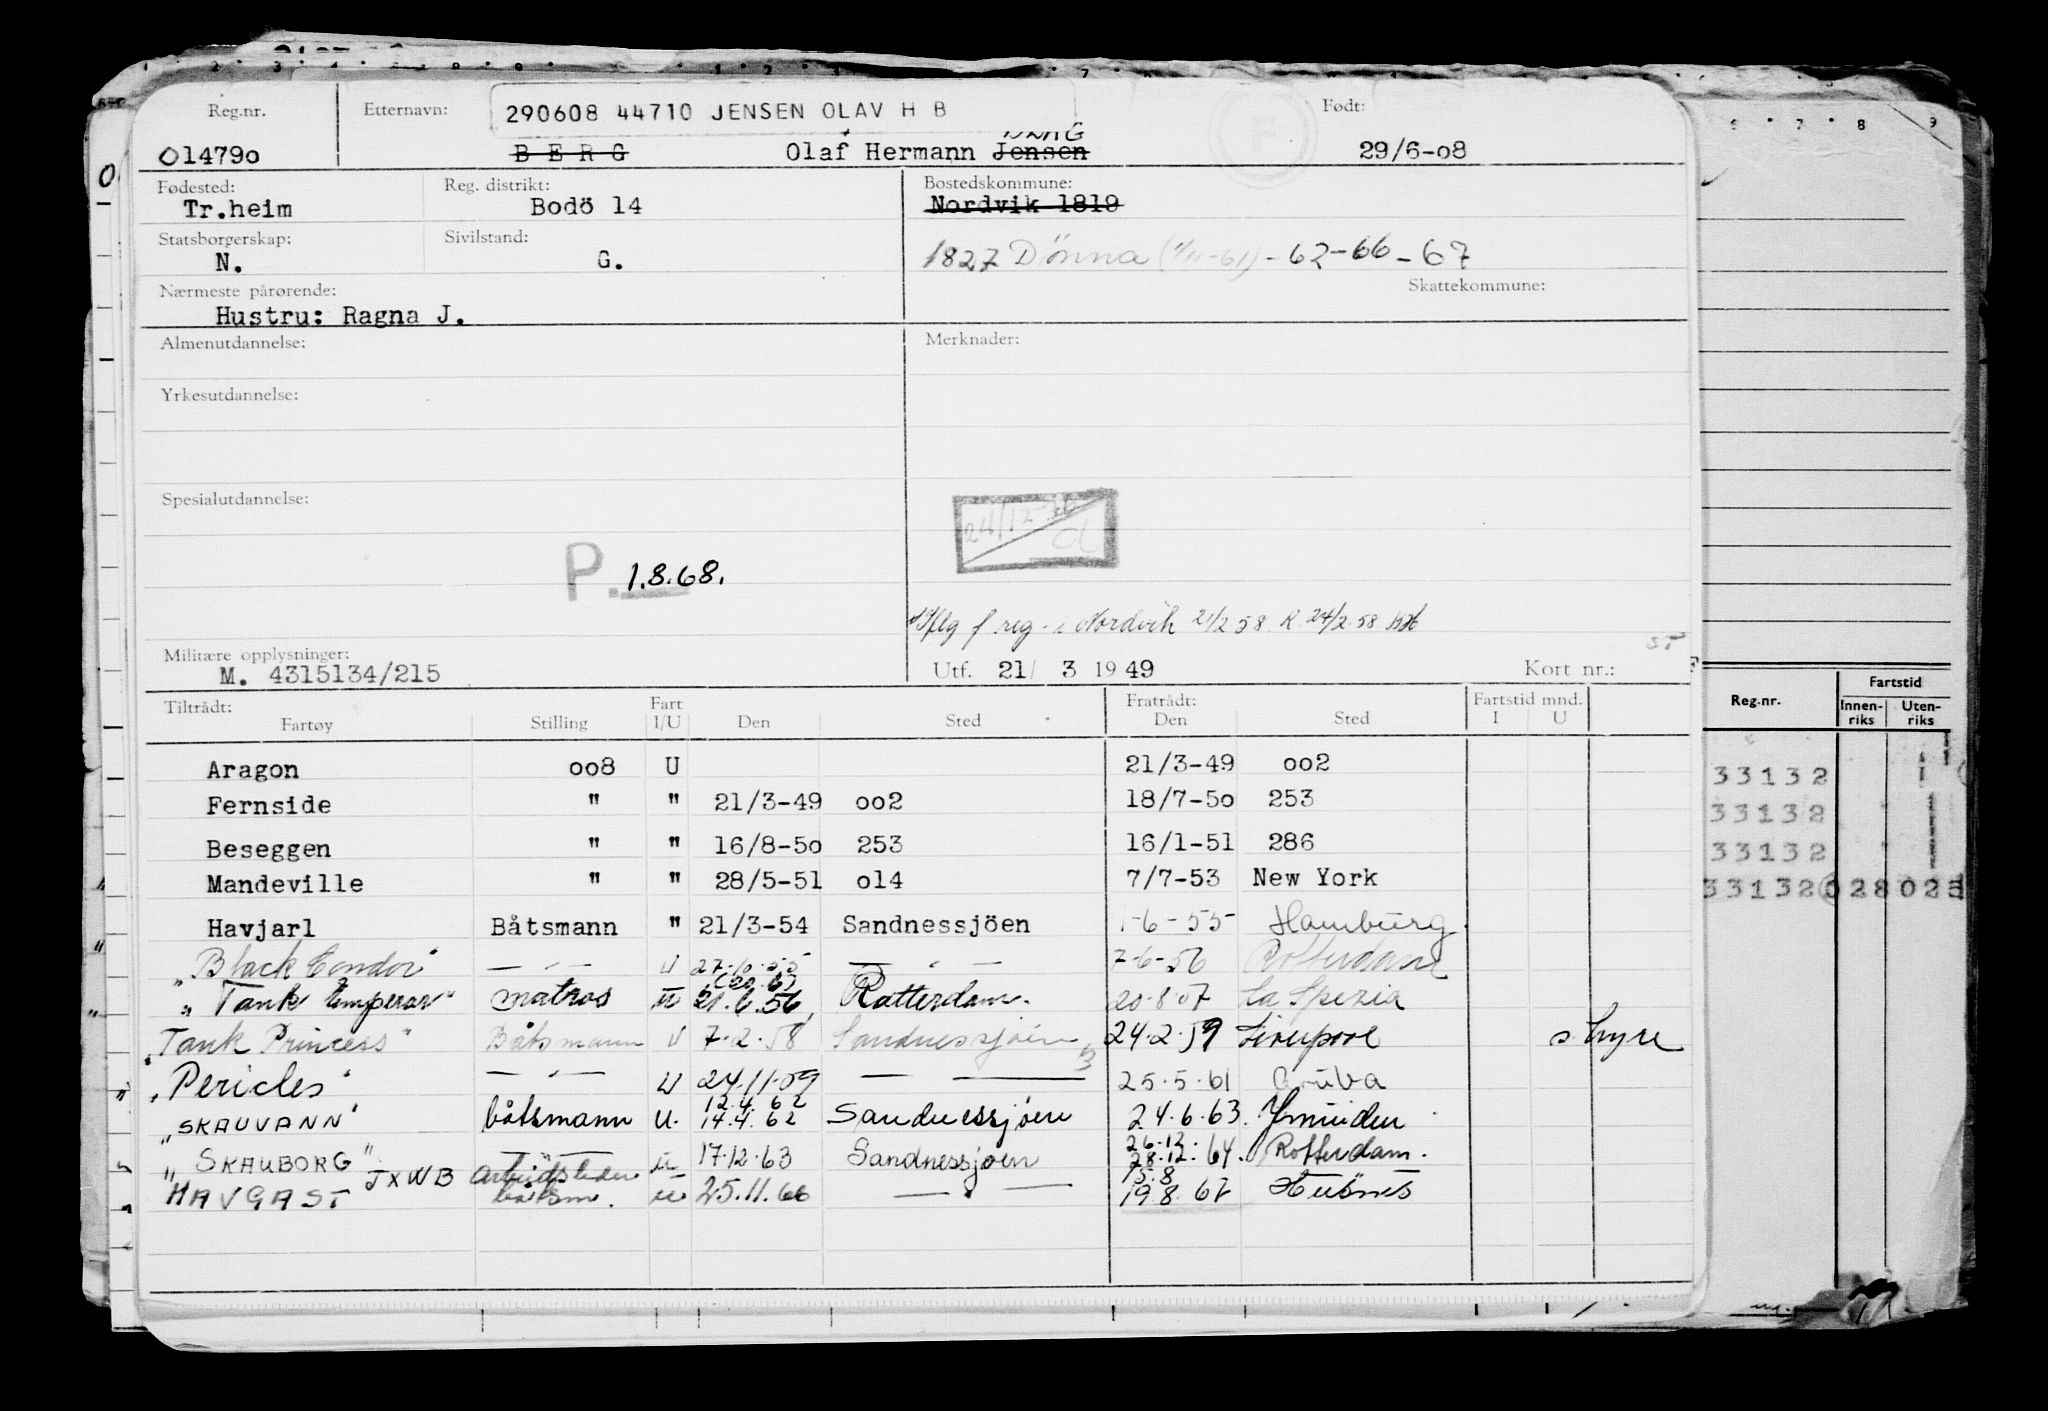 Reg.nr. Etternavn: 290608 44710 JENSEN OLAV H B Født:
014790 BERG Olaf Hermann Jensen BERG 29/6-08
Fødested: Reg. distrikt: Bostedskommune:
Tr.heim Bodö 14 Nordvik 1819
Statsborgerskap: Sivilstand:
N. G. 1827 Dönna (1/11-61) - 62-66-67
Nærmeste pårørende: Skattekommune:
Hustru: Ragna J.
Almenutdannelse: Merknader:
Yrkesutdannelse:
Spesialutdannelse:
P. 1.8.68.
f reg. i Nordvik 21/2 58 R 24/2-58
Militære opplysninger:
M. 4315134/215 Utf. 21/ 3 1949 Kort nr.:
Tiltrådt: Fart Fratrådt: Fartstid mnd.
Fartøy Stilling I/U Den Sted Den Sted I U
Aragon 008 U 21/3-49 002
Fernside " " 21/3-49 002 18/7-50 253
Beseggen " " 16/8-50 253 16/1-51 286
Mandeville " " 28/5-51 014 7/7-53 New York
Havjarl Båtsmann " 21/3-54 Sandnessjöen 1-6-55 Hamburg
"Black Condor" — " — U 27.10.55 — " — 7-6-56 Rotterdam
"Tank Emperor" matros U 21.6.56 Rotterdam. 20.8.57 La Spezia
"Tank Princess" Båtsmann U 7.2.58 Sandnessjöen 24.2.59 Liverpool s. hyre
"Pericles" — " — U 24.11.59 — " — 25.5.61 Aruba
12.4.62
"SKAUVANN" båtsmann U. 14.4.62 Sandnessjöen 24.6.63 Ymuiden
26.12
"SKAUBORG" — " — U 17.12.63 Sandnessjøen 28.12.64. Rotterdam.
JXWB Arbeidsleder 15.8
HAVGAST båtsm. U 25.11.66 — " — 19.8.67 Husnes
6 7 8 9
Reg.nr. Fartstid
Innenriks Utenriks
33132
33132
33132
33132 028 025